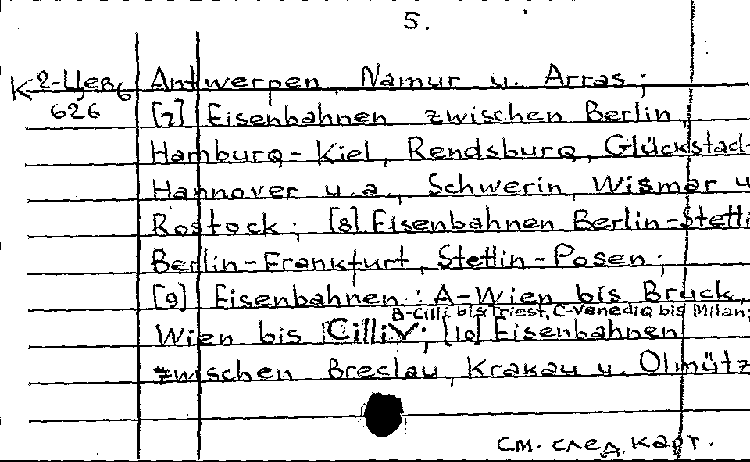 5.
К 2-Цев6
626
Antwerpen, Namur u. Arras;
[7] Eisenbahnen zwischen Berlin,
Hamburg-Kiel, Rendsburg, Glückstad-
Hannover u.a., Schwerin, Wismar u
Rostock; [8] Eisenbahnen Berlin-Stetti
Berlin-Frankfurt, Stettin-Posen;
[9] Eisenbahnen: A-Wien bis Bruck,
B-Cilli bis Triest, C-Venediq bis Milan;
Wien bis Cilli V; [10] Eisenbahnen
zwischen Breslau, Krakau u. Olmütz
см. след. карт.